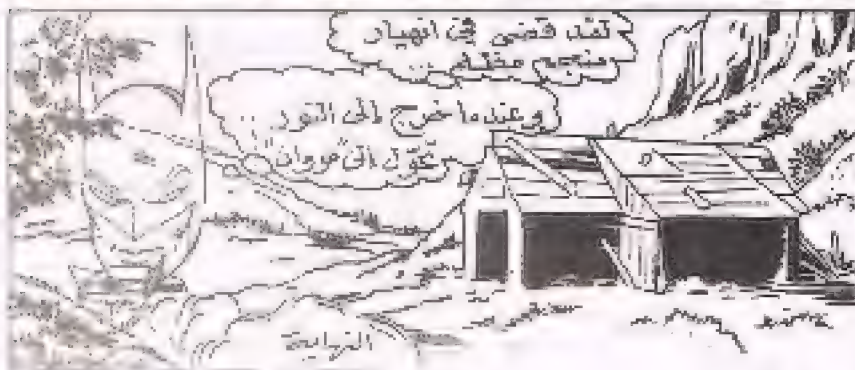 لقد قضى في انهيار
منجم مظلم ...
وعندما خرج إلى النور
تحوّل إلى "مروان" ..
النهاية